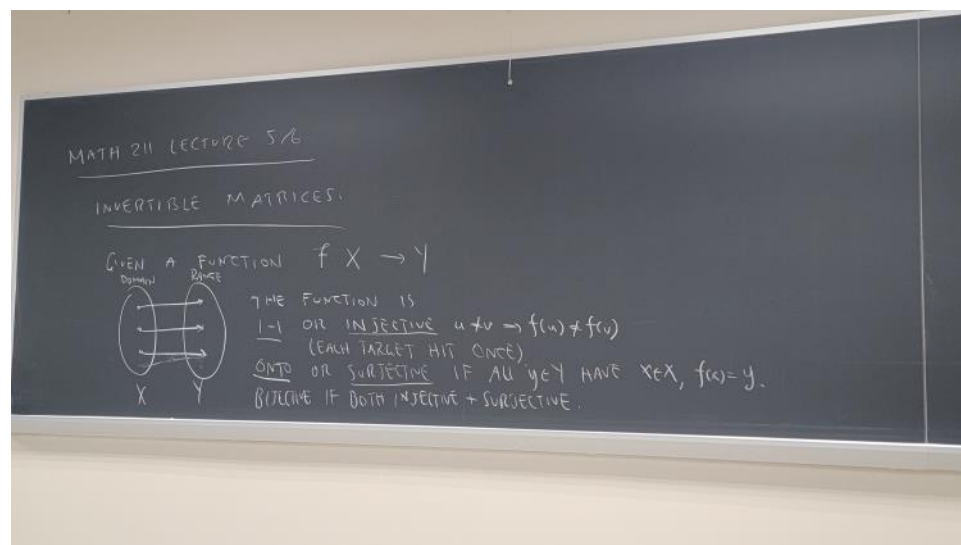 MATH 211 LECTURE 5/6
INVERTIBLE MATRICES.
GIVEN A FUNCTION f X → Y
DOMAIN RANGE
THE FUNCTION IS
1-1 OR INJECTIVE u≠v ⇒ f(u)≠f(v)
(EACH TARGET HIT ONCE)
ONTO OR SURJECTIVE IF ALL y∈Y HAVE x∈X, f(x)=y.
X Y BIJECTIVE IF BOTH INJECTIVE + SURJECTIVE.